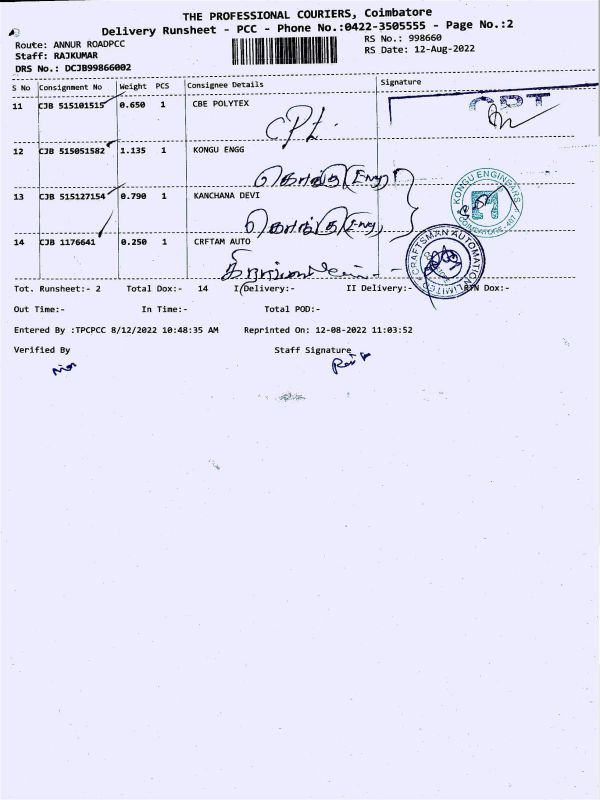 THE PROFESSIONAL COURIERS, Coimbatore
Delivery Runsheet - PCC - Phone No.:0422-3505555 - Page No.:2
Route: ANNUR ROADPCC
RS No.: 998660
Staff: RAJKUMAR
RS Date: 12-Aug-2022
DRS No.: DCJB99866002
S No Consignment No Weight PCS Consignee Details Signature
11 CJB 515101515 0.650 1 CBE POLYTEX
CPT
12 CJB 515051582 1.135 1 KONGU ENGG
கொங்கு Eng
13 CJB 515127154 0.790 1 KANCHANA DEVI
KONGU ENGINEARS
கொங்கு Eng
14 CJB 1176641 0.250 1 CRFTAM AUTO
CRAFTSMAN AUTOMATION LIMITED
Tot. Runsheet:- 2 Total Dox:- 14 I Delivery:- II Delivery:- RTN Dox:-
Out Time:- In Time:- Total POD:-
Entered By :TPCPCC 8/12/2022 10:48:35 AM Reprinted On: 12-08-2022 11:03:52
Verified By Staff Signature